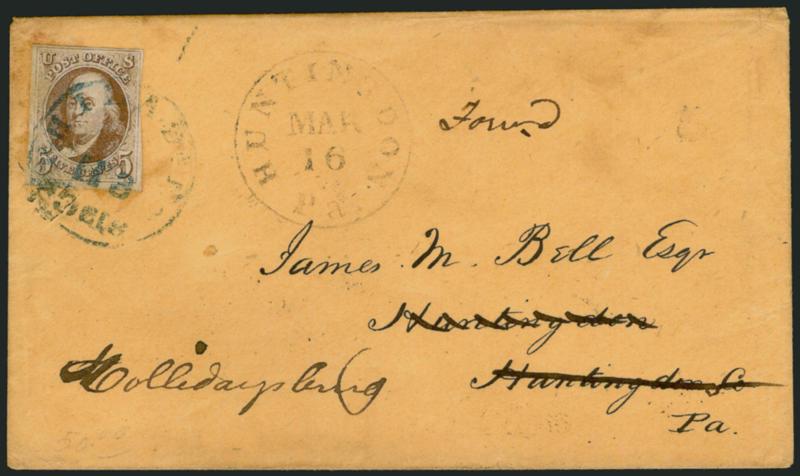 U S
POST OFFICE
5 FIVE CENTS 5
HUNTINGDON
MAR
16
Pa.
Forwd
5
James M. Bell Esqr
Huntingdon
Huntingdon Co
Pa.
Hollidaysburg
50.00